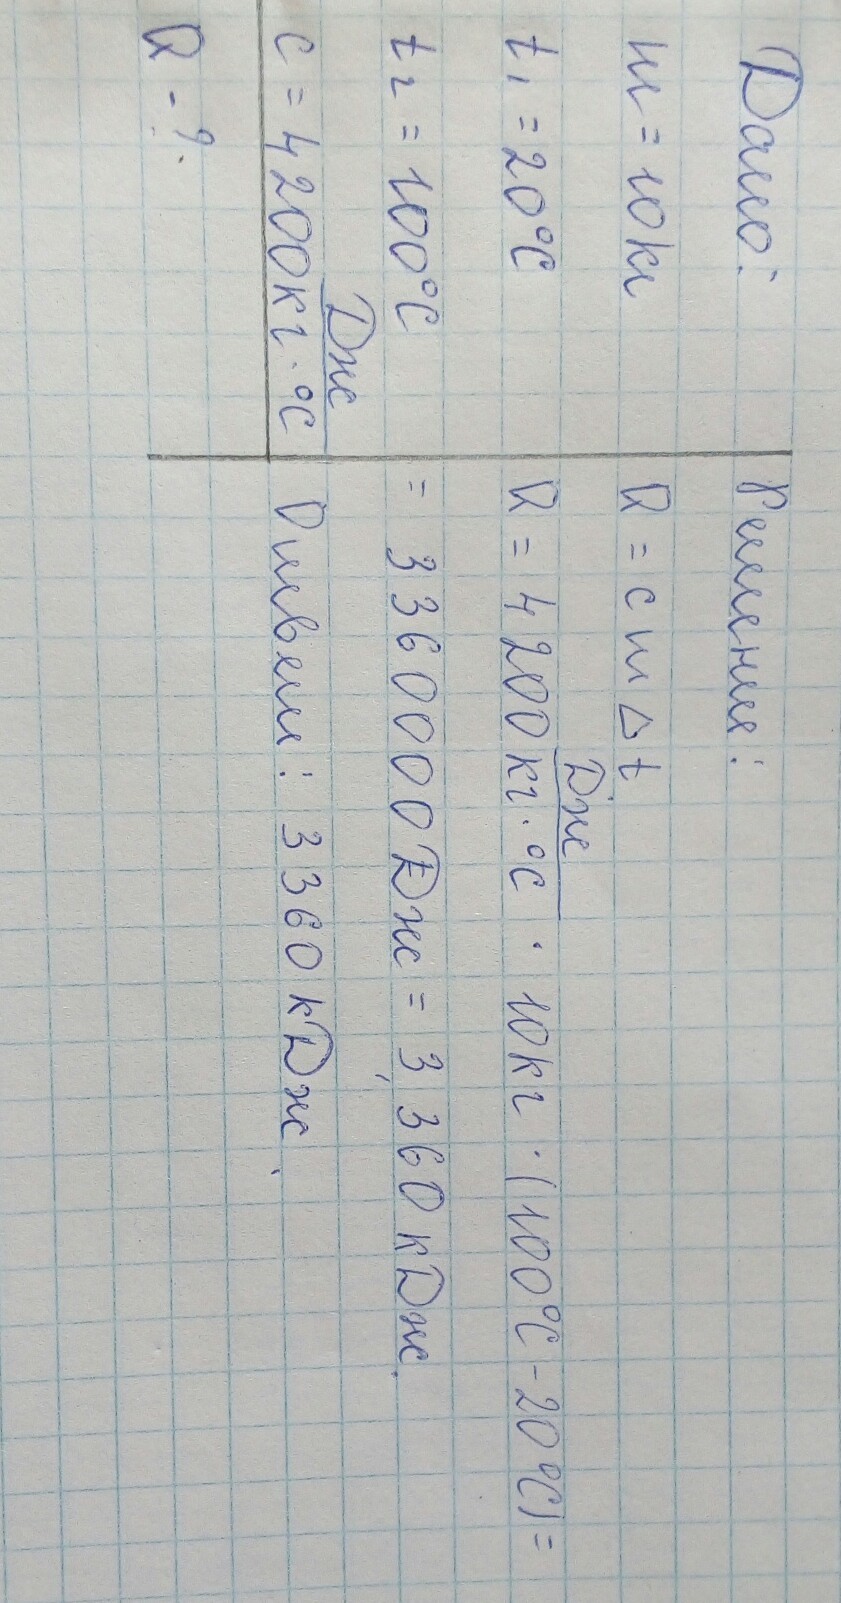 Дано:
m = 10кг
t₁ = 20°C
t₂ = 100°C
Дж
c = 4200кг·°C
Q - ?
Решение:
Q = cmΔt
Дж
Q = 4200кг·°C · 10кг · (100°C - 20°C) =
= 3360000Дж = 3360кДж.
Ответ: 3360кДж.